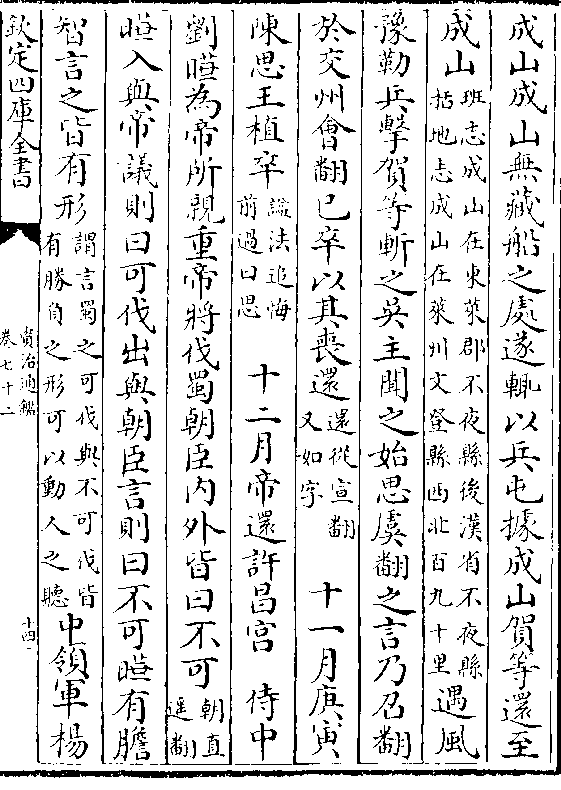 成山成山無藏船之處遂輒以兵屯據成山賀等還至
成山班志成山在東萊郡不夜縣後漢省不夜縣括地志成山在萊州文登縣西北百九十里遇風
豫勒兵擊賀等斬之吳主聞之始思虞翻之言乃召翻
於交州會翻已卒以其喪還還從宣翻又如字 十一月庚寅
陳思王植卒諡法追悔前過曰思 十二月帝還許昌宮 侍中
劉曄為帝所親重帝將伐蜀朝臣内外皆曰不可朝直遥翻
曄入與帝議則曰可伐出與朝臣言則曰不可曄有膽
智言之皆有形謂言蜀之可伐與不可伐皆有勝負之形可以動人之聽中領軍楊
欽定四庫全書
資治通鑑
卷七十二
十四